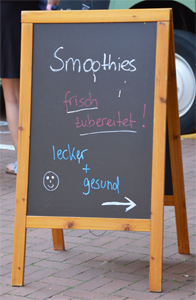 Smoothies
frisch
zubereitet!
lecker
+
gesund